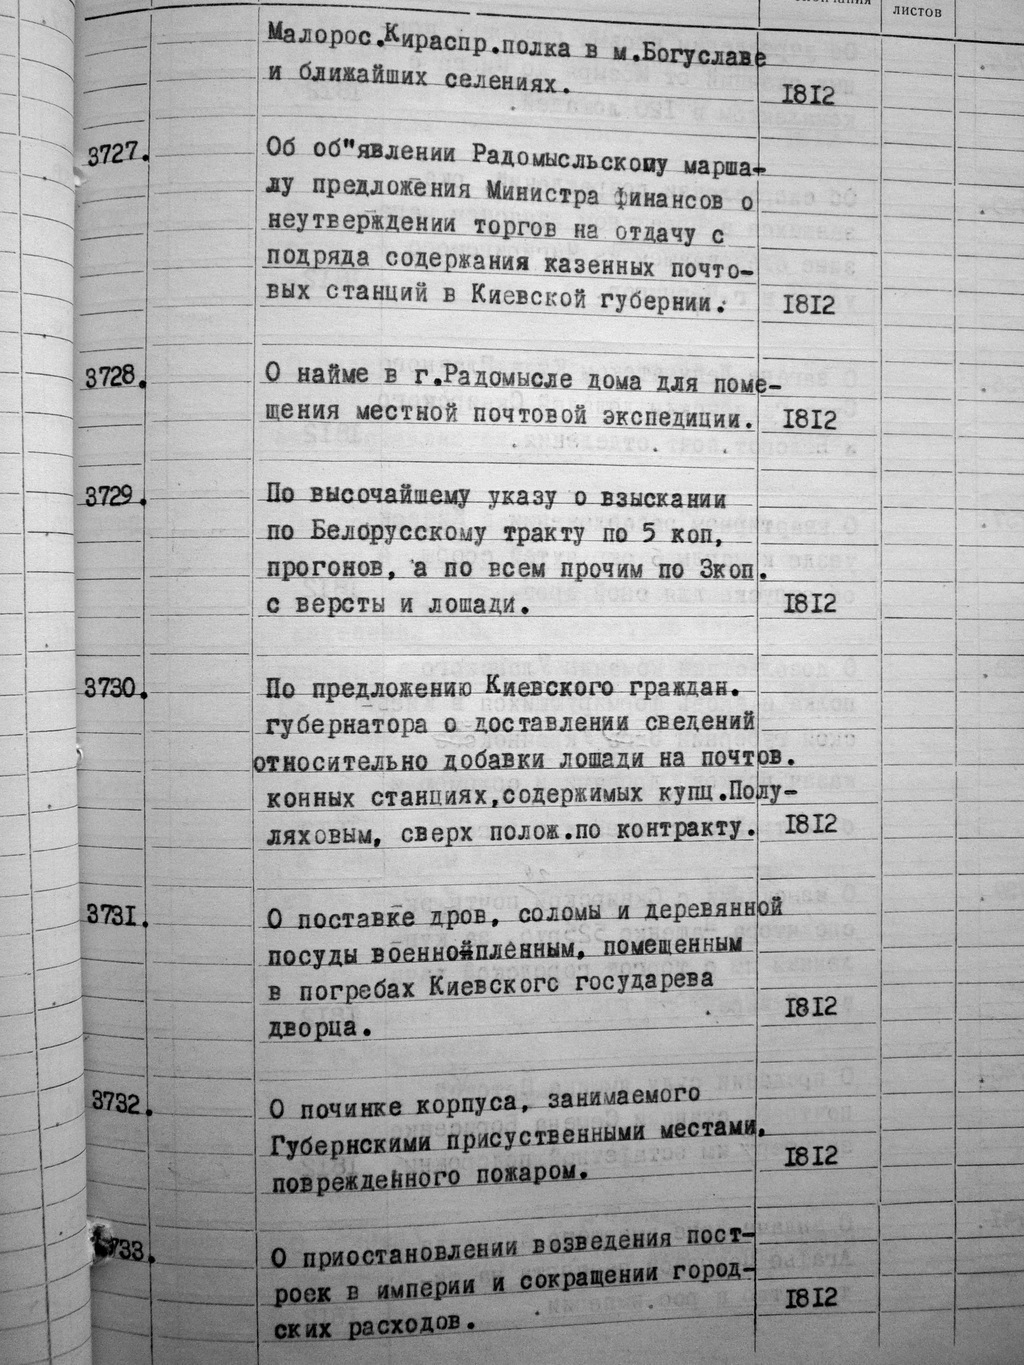 листов
Малорос.Кираспр.полка в м.Богуславе
и ближайших селениях.
1812
3727.
Об об"явлении Радомысльскому марша-
лу предложения Министра финансов о
неутверждении торгов на отдачу с
подряда содержания казенных почто-
вых станций в Киевской губернии.
1812
3728.
О найме в г.Радомысле дома для поме-
щения местной почтовой экспедиции.
1812
3729.
По высочайшему указу о взыскании
по Белорусскому тракту по 5 коп,
прогонов, а по всем прочим по 3коп.
с версты и лошади.
1812
3730.
По предложению Киевского граждан.
губернатора о доставлении сведений
относительно добавки лошади на почтов.
конных станциях,содержимых купц.Полу-
ляховым, сверх полож.по контракту.
1812
3731.
О поставке дров, соломы и деревянной
посуды военнопленным, помещенным
в погребах Киевского государева
дворца.
1812
3732.
О починке корпуса, занимаемого
Губернскими присуственными местами,
поврежденного пожаром.
1812
733.
О приостановлении возведения пост-
роек в империи и сокращении город-
ских расходов.
1812